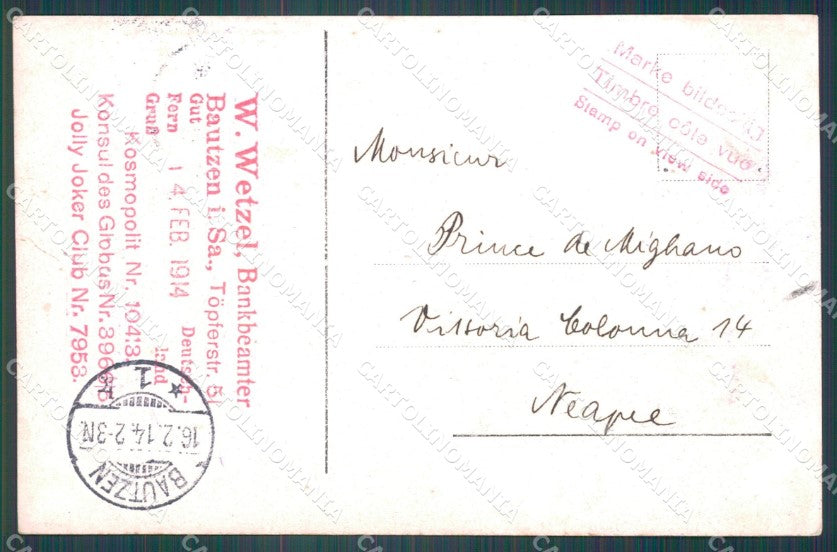 W. Wetzel, Bankbeamter
Bautzen i. Sa., Töpferstr. 5
Gut
Fern
Gruß
14. FEB. 1914
Deutsch-
land
Kosmopolit Nr. 10413
Konsul des Globus Nr.
Jolly Joker Club Nr. 7953.
BAUTZEN
16.2.14.2-3N.
* 1 *
Marke bildseitig
Timbre côte vue
Stamp on view side
Monsieur
Prince de Mighano
Vittoria Colonna 14
Neapel
CARTOLINOMANIA